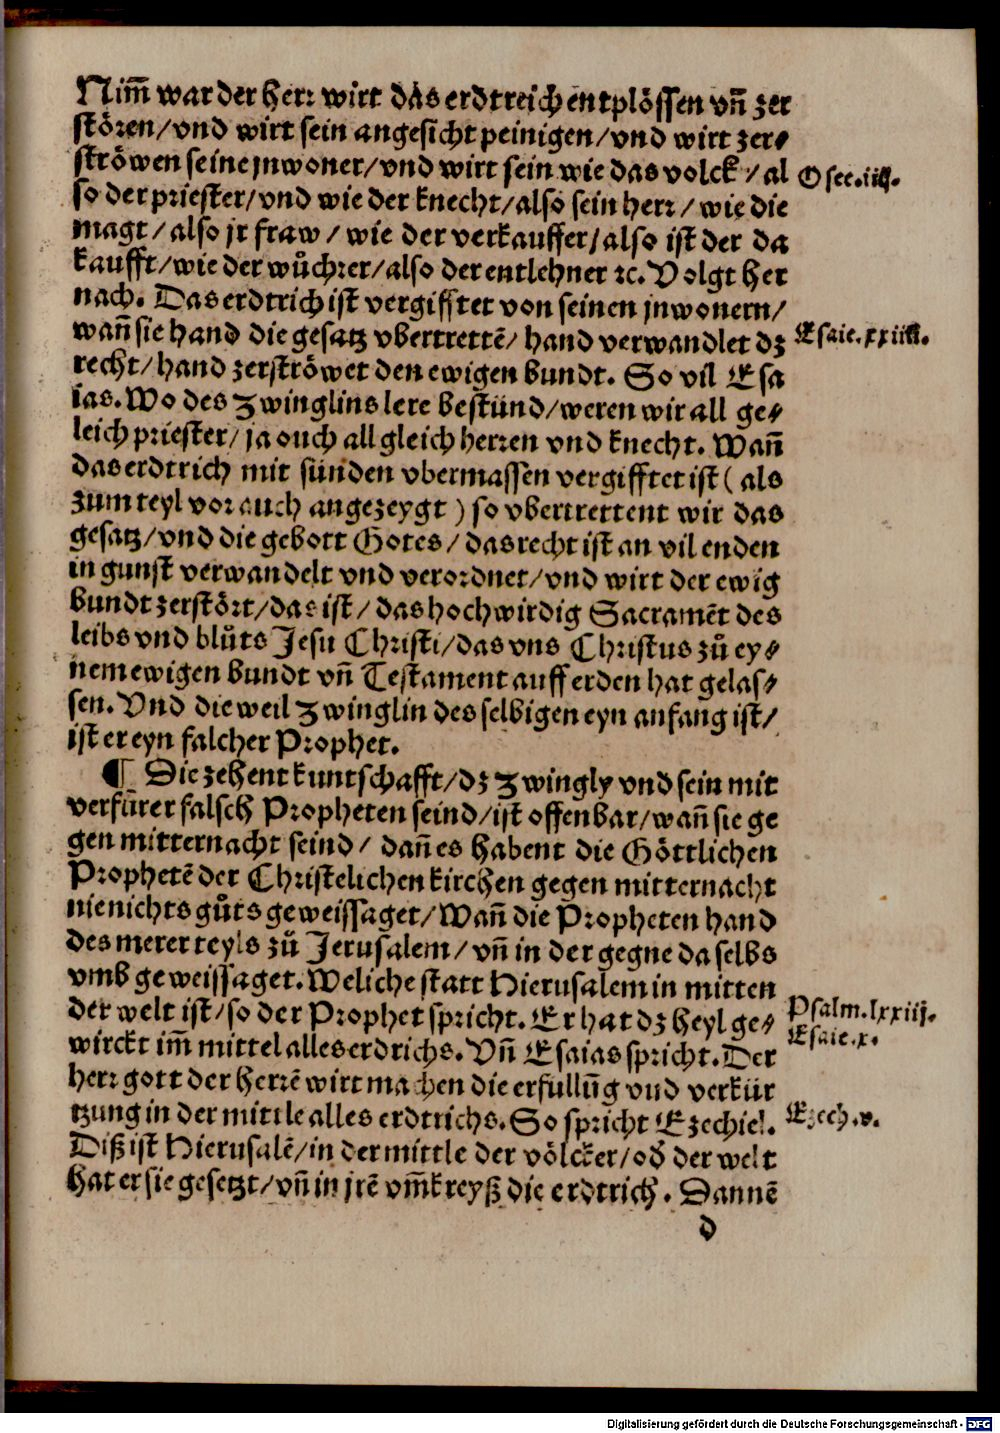 Nim̄ war der herr wirt das erdtreich entplössen vn̄ zer
stören/vnd wirt sein angesicht peinigen/vnd wirt zer⸗
ströwen seine jnwoner/vnd wirt sein wie das volck/al
so der priester/vnd wie der knecht/also sein herr/wie die
magt/also jr fraw/wie der verkauffer/also ist der da
kaufft/wie der wůchrer/also der entlehner ꝛc. Volgt her
nach. Das erdtrich ist vergifftet von seinen jnwonern/
wan̄ sie hand die gesatz vbertrettē/hand verwandlet dz
recht/hand zerströwet den ewigen bundt. So vil Esa
ias. Wo des Zwinglins lere bestünd/weren wir all ge⸗
leich priester/ja ouch all gleich herren vnd knecht. Wan̄
das erdtrich mit sünden vbermassen vergifftet ist (als
zum teyl vor auch angezeygt) so vbertrettent wir das
gesatz/vnd die gebott Gotes/das recht ist an vil enden
in gunst verwandelt vnd verordnet/vnd wirt der ewig
bundt zerstört/das ist/das hochwirdig Sacramēt des
leibs vnd blůts Jesu Christi/das vns Christus zů ey⸗
nem ewigen bundt vn̄ Testament auff erden hat gelas⸗
sen. Vnd die weil Zwinglin des selbigen eyn anfang ist/
ist er eyn falcher Prophet.
¶ Die zehent kuntschafft/dz Zwingly vnd sein mit
verfürer falsch Propheten seind/ist offenbar/wan̄ sie ge
gen mitternacht seind/dan̄ es habent die Göttlichen
Prophetē der Christelichen kirchen gegen mitternacht
nie nichts gůts geweissaget/Wan̄ die Propheten hand
des merer teyls zů Jerusalem/vn̄ in der gegne daselbs
vmb geweissaget. Weliche statt Hierusalem in mitten
der welt ist/so der Prophet spricht. Er hat dz heyl ge⸗
wirckt im̄ mittel alles erdrichs. Vn̄ Esaias spricht. Der
herr gott der herrē wirt machen die erfullūg vnd verkür
tzung in der mittle alles erdtrichs. So spricht Ezechiel.
Diß ist Hierusalē/in der mittle der völcker/od̄ der welt
hat er sie gesetzt/vn̄ in jrē vm̄kreyß die erdtrich. Dannē
d
Osee.iiij.
Esaie.xxiiij.
Psalm.lxxiij.
Esaie.x.
Ezech.v.
Digitalisierung gefördert durch die Deutsche Forschungsgemeinschaft - DFG